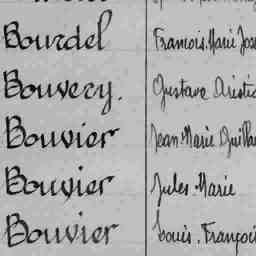 Bourdel François Marie Jose
Bouvery. Gustave Aristi
Bouvier Jean Marie Guilla
Bouvier Jules Marie
Bouvier Louis François